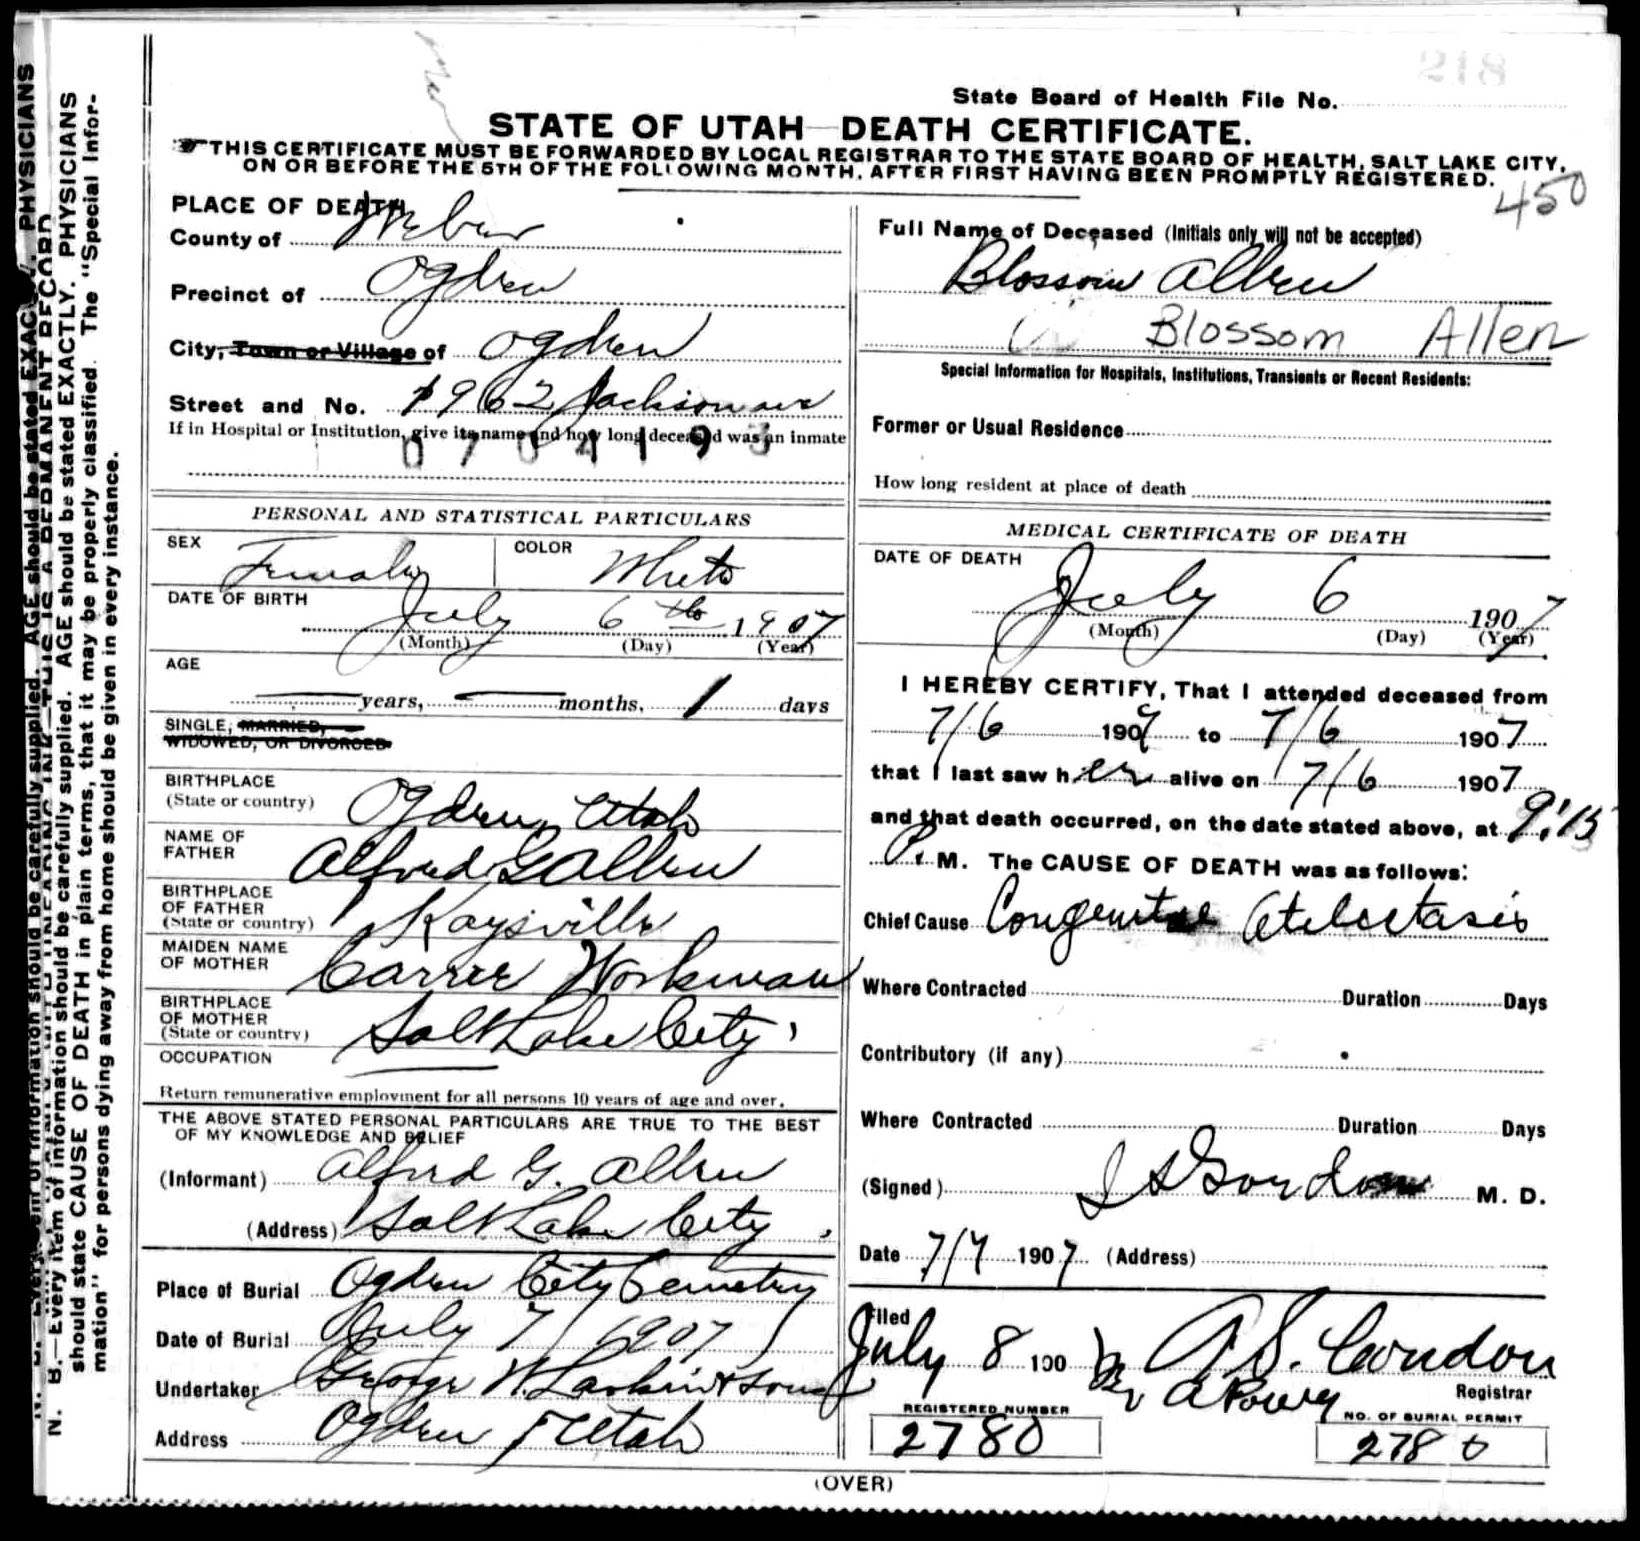 218
State Board of Health File No.
STATE OF UTAH—DEATH CERTIFICATE.
THIS CERTIFICATE MUST BE FORWARDED BY LOCAL REGISTRAR TO THE STATE BOARD OF HEALTH, SALT LAKE CITY,
ON OR BEFORE THE 5TH OF THE FOLLOWING MONTH, AFTER FIRST HAVING BEEN PROMPTLY REGISTERED.
450
PLACE OF DEATH
County of Weber
Precinct of Ogden
City, Town or Village of Ogden
Street and No. 1962 Jackson ave
If in Hospital or Institution, give its name and how long deceased was an inmate
Full Name of Deceased (Initials only will not be accepted)
Blossom Allen
Blossom Allen
Special Information for Hospitals, Institutions, Transients or Recent Residents:
Former or Usual Residence
How long resident at place of death
PERSONAL AND STATISTICAL PARTICULARS
SEX Female COLOR White
DATE OF BIRTH
July 6th 1907
(Month) (Day) (Year)
AGE
years, months, 1 days
SINGLE, MARRIED,
WIDOWED, OR DIVORCED
BIRTHPLACE
(State or country) Ogden Utah
NAME OF
FATHER Alfred G Allen
BIRTHPLACE
OF FATHER
(State or country) Kaysville
MAIDEN NAME
OF MOTHER Carrie Workman
BIRTHPLACE
OF MOTHER
(State or country) Salt Lake City
OCCUPATION
Return remunerative employment for all persons 10 years of age and over.
THE ABOVE STATED PERSONAL PARTICULARS ARE TRUE TO THE BEST
OF MY KNOWLEDGE AND BELIEF
(Informant) Alfred G. Allen
(Address) Salt Lake City
Place of Burial Ogden City Cemetery
Date of Burial July 7 1907
Undertaker George W. Larkin & Sons
Address Ogden Utah
MEDICAL CERTIFICATE OF DEATH
DATE OF DEATH
July 6 1907
(Month) (Day) (Year)
I HEREBY CERTIFY, That I attended deceased from
7/6 1907 to 7/6 1907
that I last saw her alive on 7/6 1907
and that death occurred, on the date stated above, at 9:15
P. M. The CAUSE OF DEATH was as follows:
Chief Cause Congenital Atelectasis
Where Contracted Duration Days
Contributory (if any)
Where Contracted Duration Days
(Signed) Gordon M. D.
Date 7/7 1907 (Address)
Filed
July 8 190 A. S. Condon
Registrar
REGISTERED NUMBER
2780
NO. OF BURIAL PERMIT
2780
(OVER)
N. B.—Every item of information should be carefully supplied. AGE should be stated EXACTLY. PHYSICIANS
should state CAUSE OF DEATH in plain terms, that it may be properly classified. The "Special Infor-
mation" for persons dying away from home should be given in every instance.